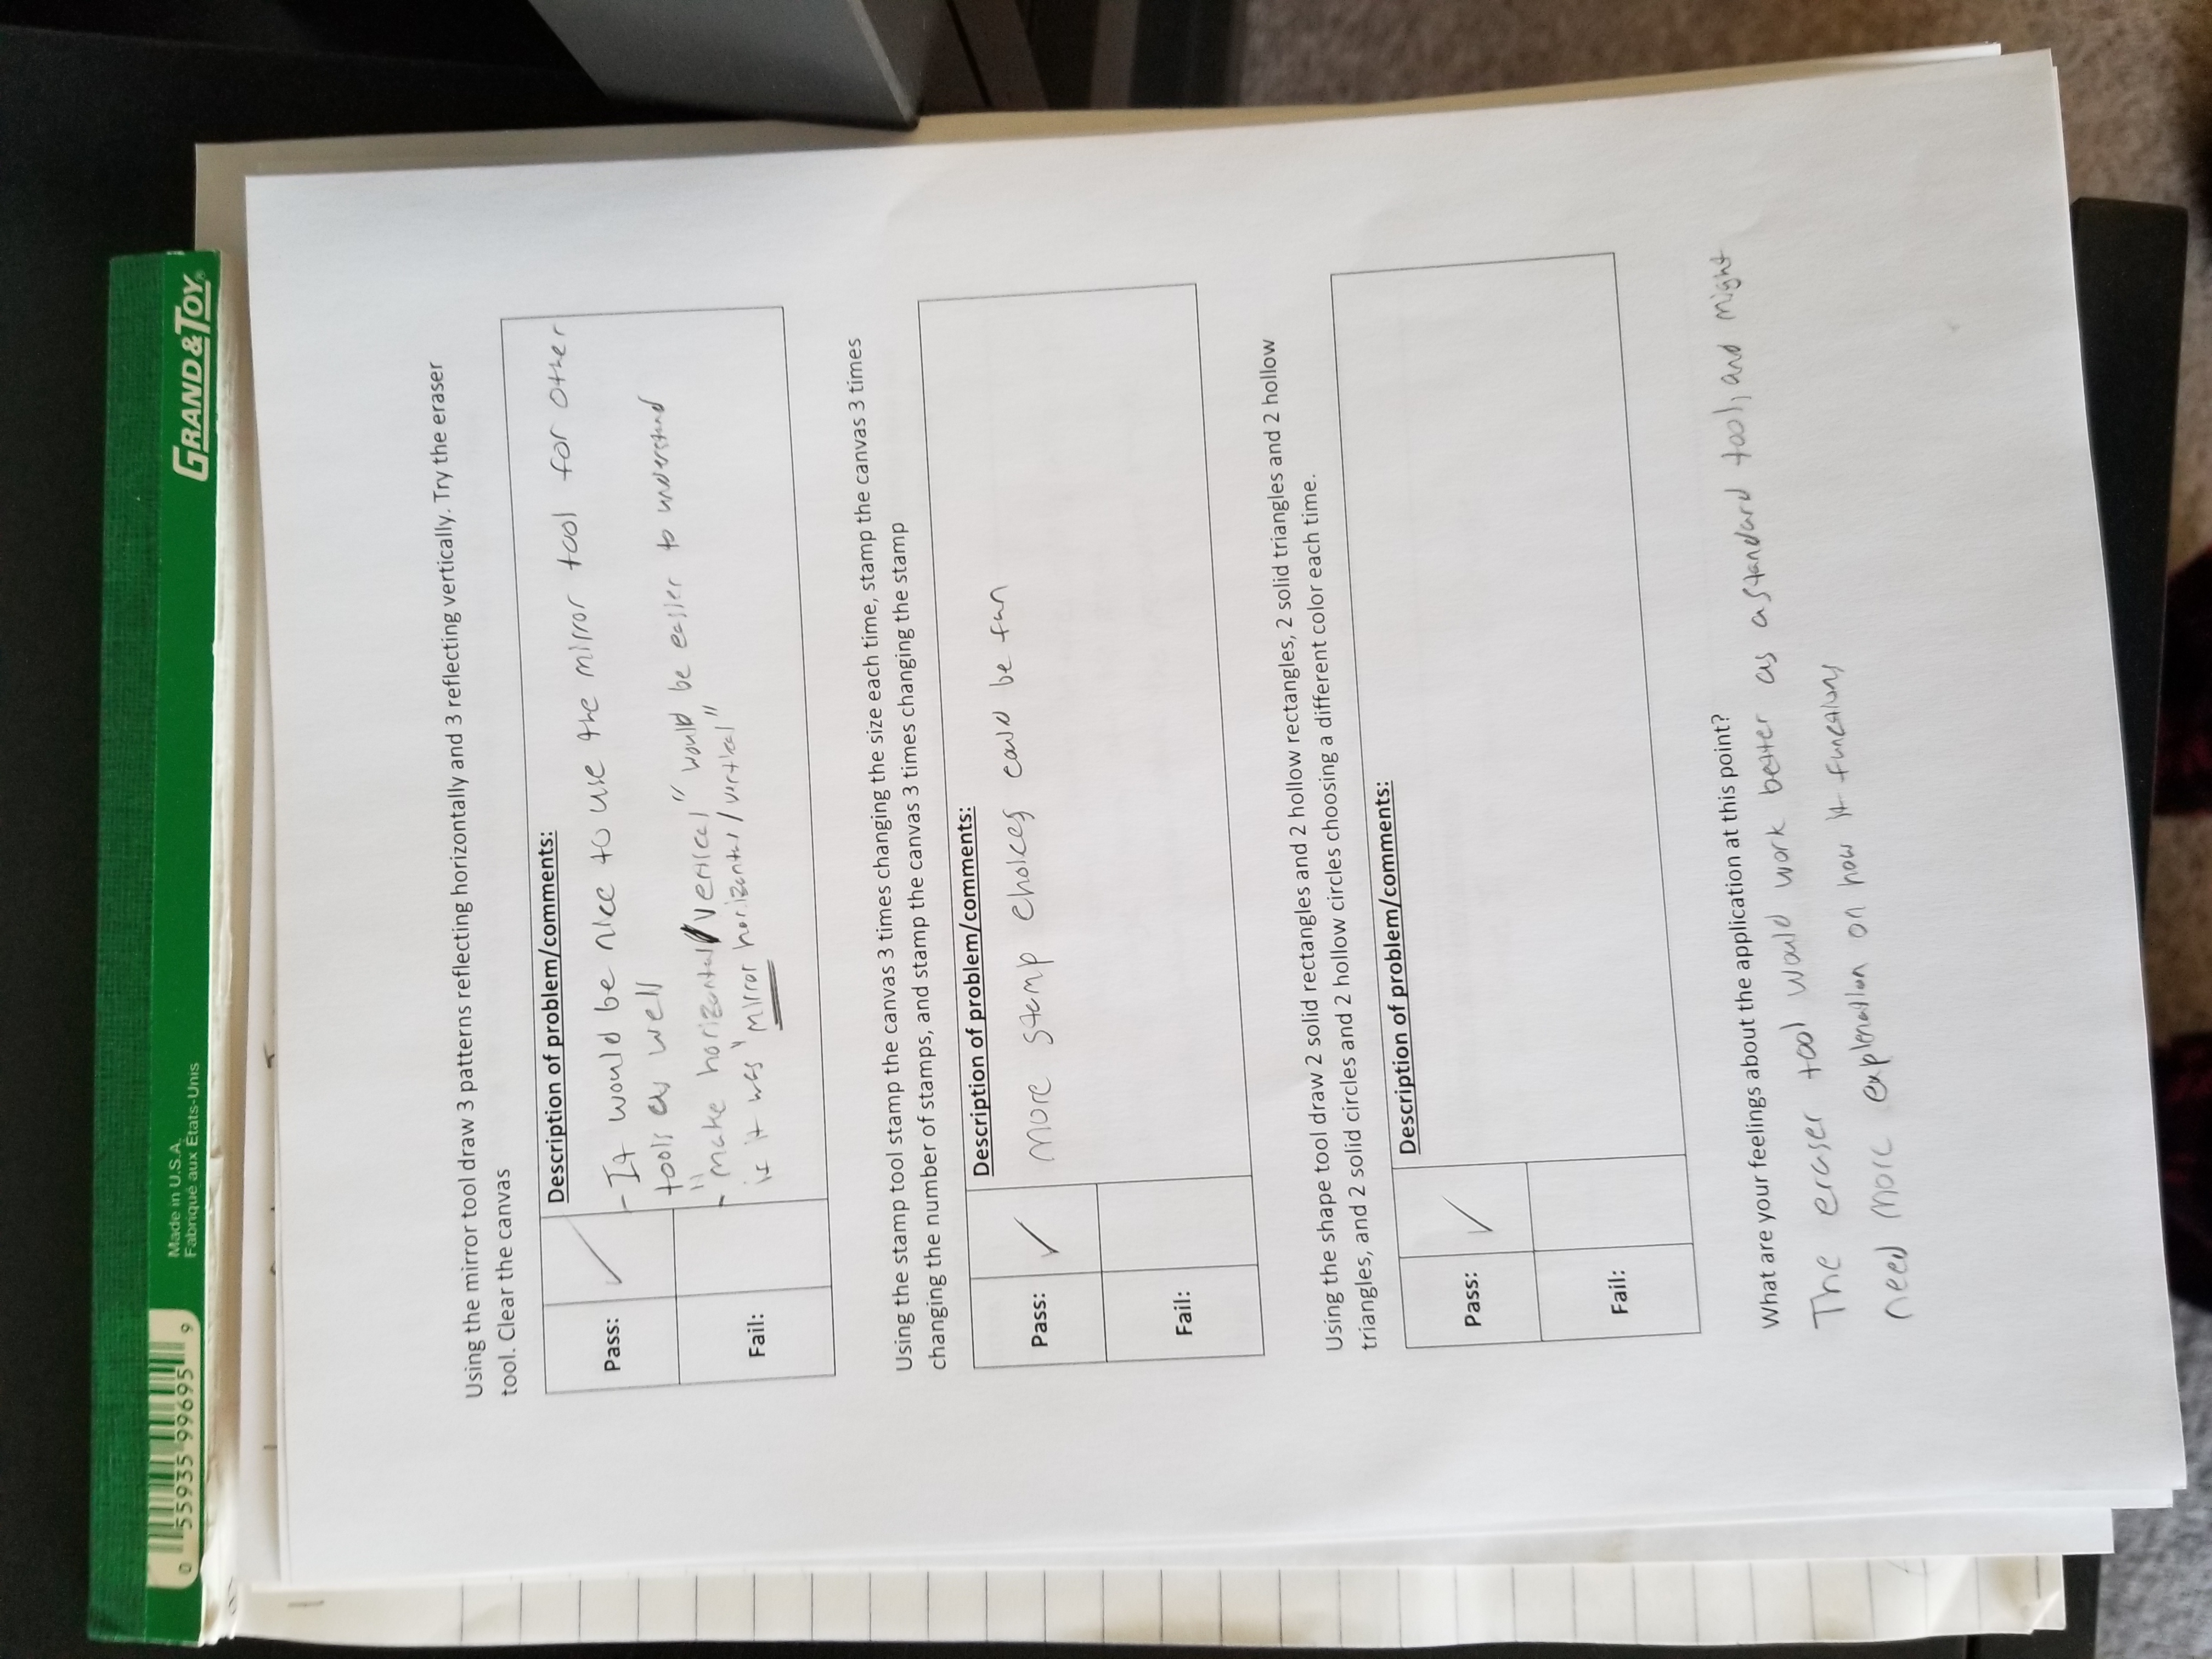 0 55935 99695 9
Made in U.S.A.
Fabriqué aux États-Unis
GRAND & TOY®
Using the mirror tool draw 3 patterns reflecting horizontally and 3 reflecting vertically. Try the eraser
tool. Clear the canvas
Description of problem/comments:
Pass: ✓
- It would be nice to use the mirror tool for other
tools as well
- "make horizontal/vertical" would be easier to understand
is it was "mirror horizontal/vertical"
Fail:
Using the stamp tool stamp the canvas 3 times changing the size each time, stamp the canvas 3 times
changing the number of stamps, and stamp the canvas 3 times changing the stamp
Description of problem/comments:
Pass: ✓
more stamp choices could be fun
Fail:
Using the shape tool draw 2 solid rectangles and 2 hollow rectangles, 2 solid triangles and 2 hollow
triangles, and 2 solid circles and 2 hollow circles choosing a different color each time.
Description of problem/comments:
Pass: ✓
Fail:
What are your feelings about the application at this point?
The eraser tool would work better as a standard tool, and might
need more explenation on how it functions